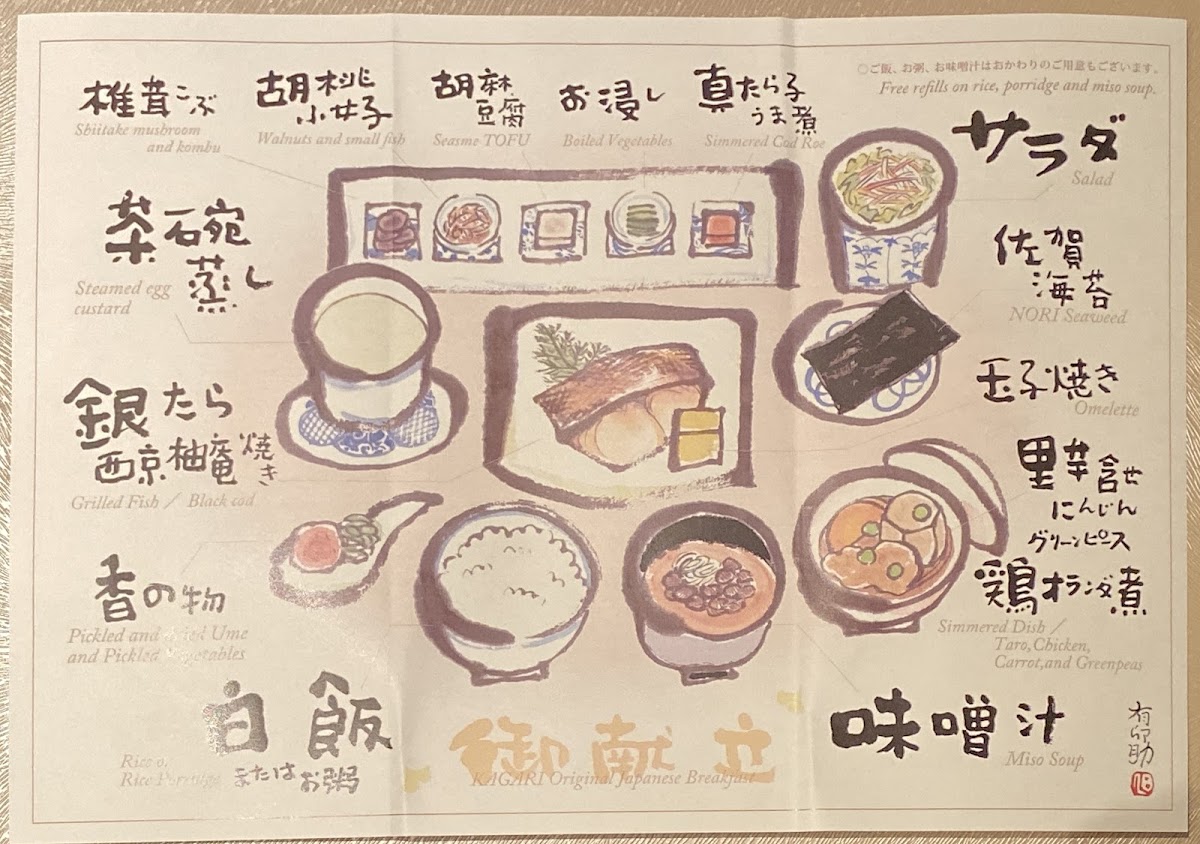 椎茸こぶ
Shiitake mushroom
and kombu
胡桃
小女子
Walnuts and small fish
胡麻
豆腐
Seasme TOFU
お浸し
Boiled Vegetables
真たら子
うま煮
Simmered Cod Roe
○ご飯、お粥、お味噌汁はおかわりのご用意もございます。
Free refills on rice, porridge and miso soup.
サラダ
Salad
茶碗
蒸し
Steamed egg
custard
佐賀
海苔
NORI Seaweed
玉子焼き
Omelette
銀たら
西京柚庵焼き
Grilled Fish / Black cod
里芋含せ
にんじん
グリーンピース
鶏オランダ煮
Simmered Dish /
Taro,Chicken,
Carrot,and Greenpeas
香の物
Pickled and Ume
and Pickled Vegetables
白飯
または お粥
Rice or
Rice Porridge
御献立
KAGARI Original Japanese Breakfast
味噌汁
Miso Soup